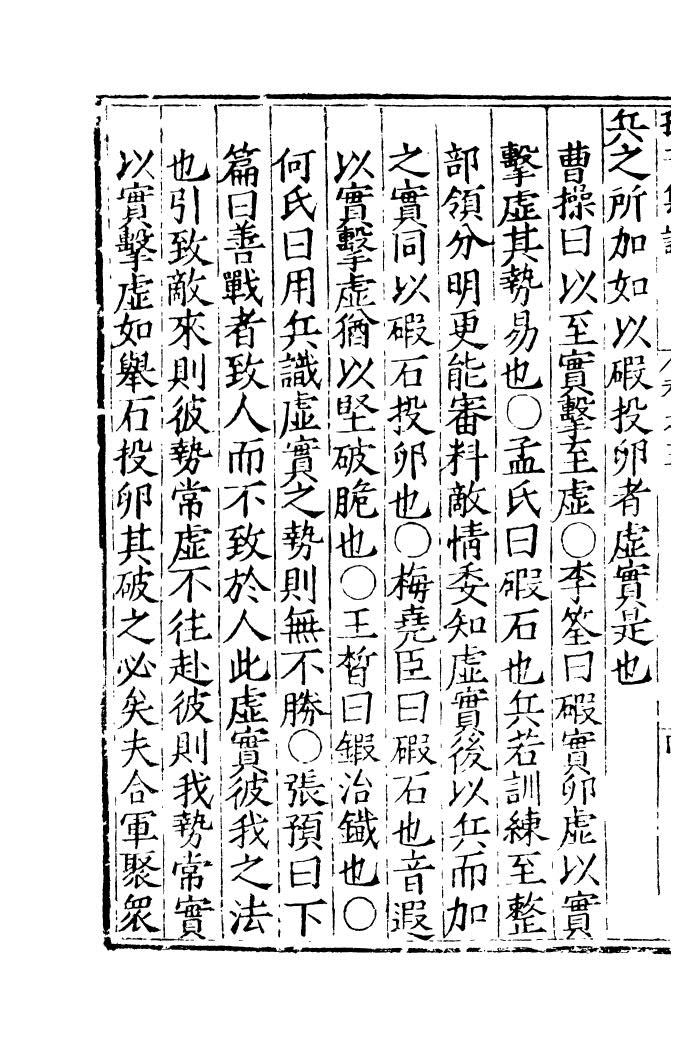 兵之所加如以碬投卵者虛實是也
曹操曰以至實擊至虛〇李筌曰碬實卵虛以實
擊虛其勢易也〇孟氏曰碬石也兵若訓練至整
部領分明更能審料敵情委知虛實後以兵而加
之實同以碬石投卵也〇梅堯臣曰碬石也音遐
以實擊虛猶以堅破脆也〇王晳曰鍜治鐵也〇
何氏曰用兵識虛實之勢則無不勝〇張預曰下
篇曰善戰者致人而不致於人此虛實彼我之法
也引致敵來則彼勢常虛不往赴彼則我勢常實
以實擊虛如舉石投卵其破之必矣夫合軍聚衆